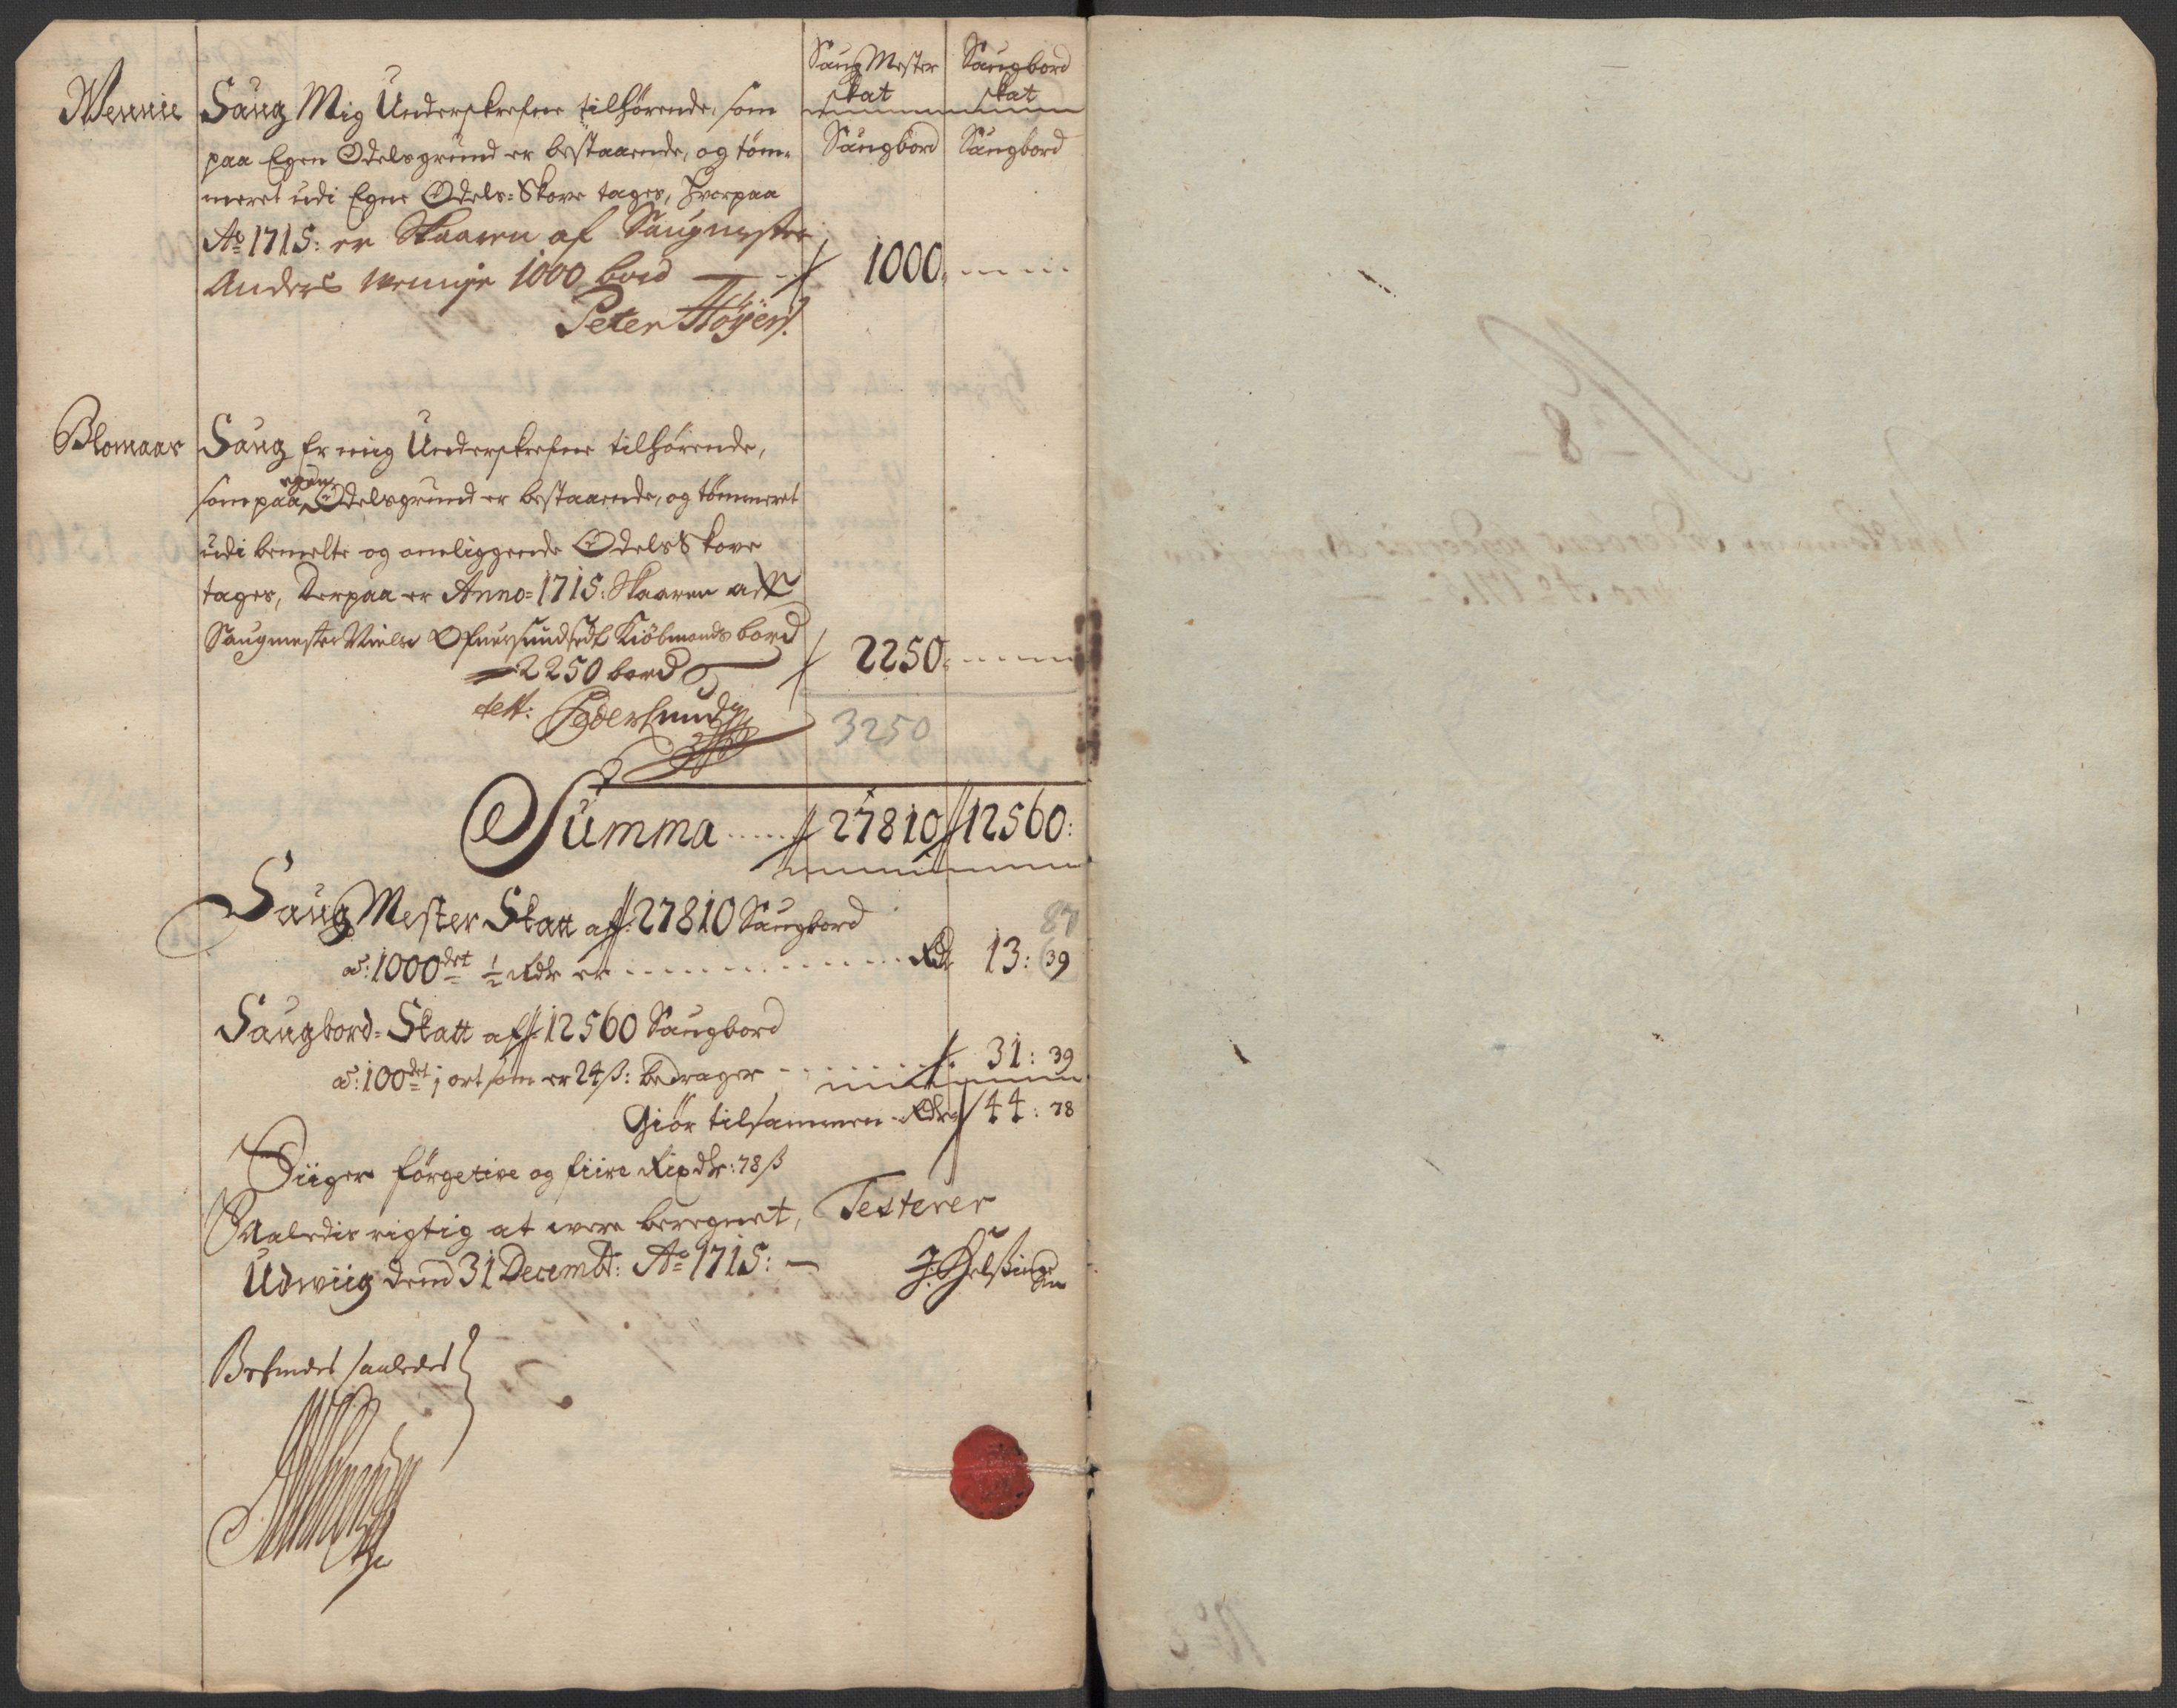 Saug Mester Saugbord
skat skat
Saugbord Saugbord
Wennie Saug Mig Underskrefne tilhørende, som
paa Egen Odelsgrund er bestaaende, og töm-
meret udi Egne Odels-Skove tages, hvorpaa
Ao 1715: er Skaaren af Saugmester
Anders Wennie 1000 bord 1000
Peter Høyer
Blomaar Saug Er mig Underskrefne tilhørende,
som paa egen Odelsgrund er bestaaende, og tömmeret
udi bemelte og omliggende Odels Skove
tages, Derpaa er Anno 1715: Skaaren aff
Saugmester Niels Kiöbmands bord
2250 bord 2250
3250
Summa 27810 12560:
Saug Mester Skatt aff 27810 Saugbord
87
a: 1000det ½ Rdr er Rdr 13: 39
Saugbord-Skatt aff 12560 Saugbord
a: 100det 1 ort som er 24 ß: bedrager 31: 39
Giör tilsammen Rdr 44: 78
Siiger förgetive og fiire Rixdr: 78 ß
Saaledis rigtig at were beregnet, Testerer
Udwiig dend 31 Decembr: Ao 1715:
Befindes saaledes
No 8